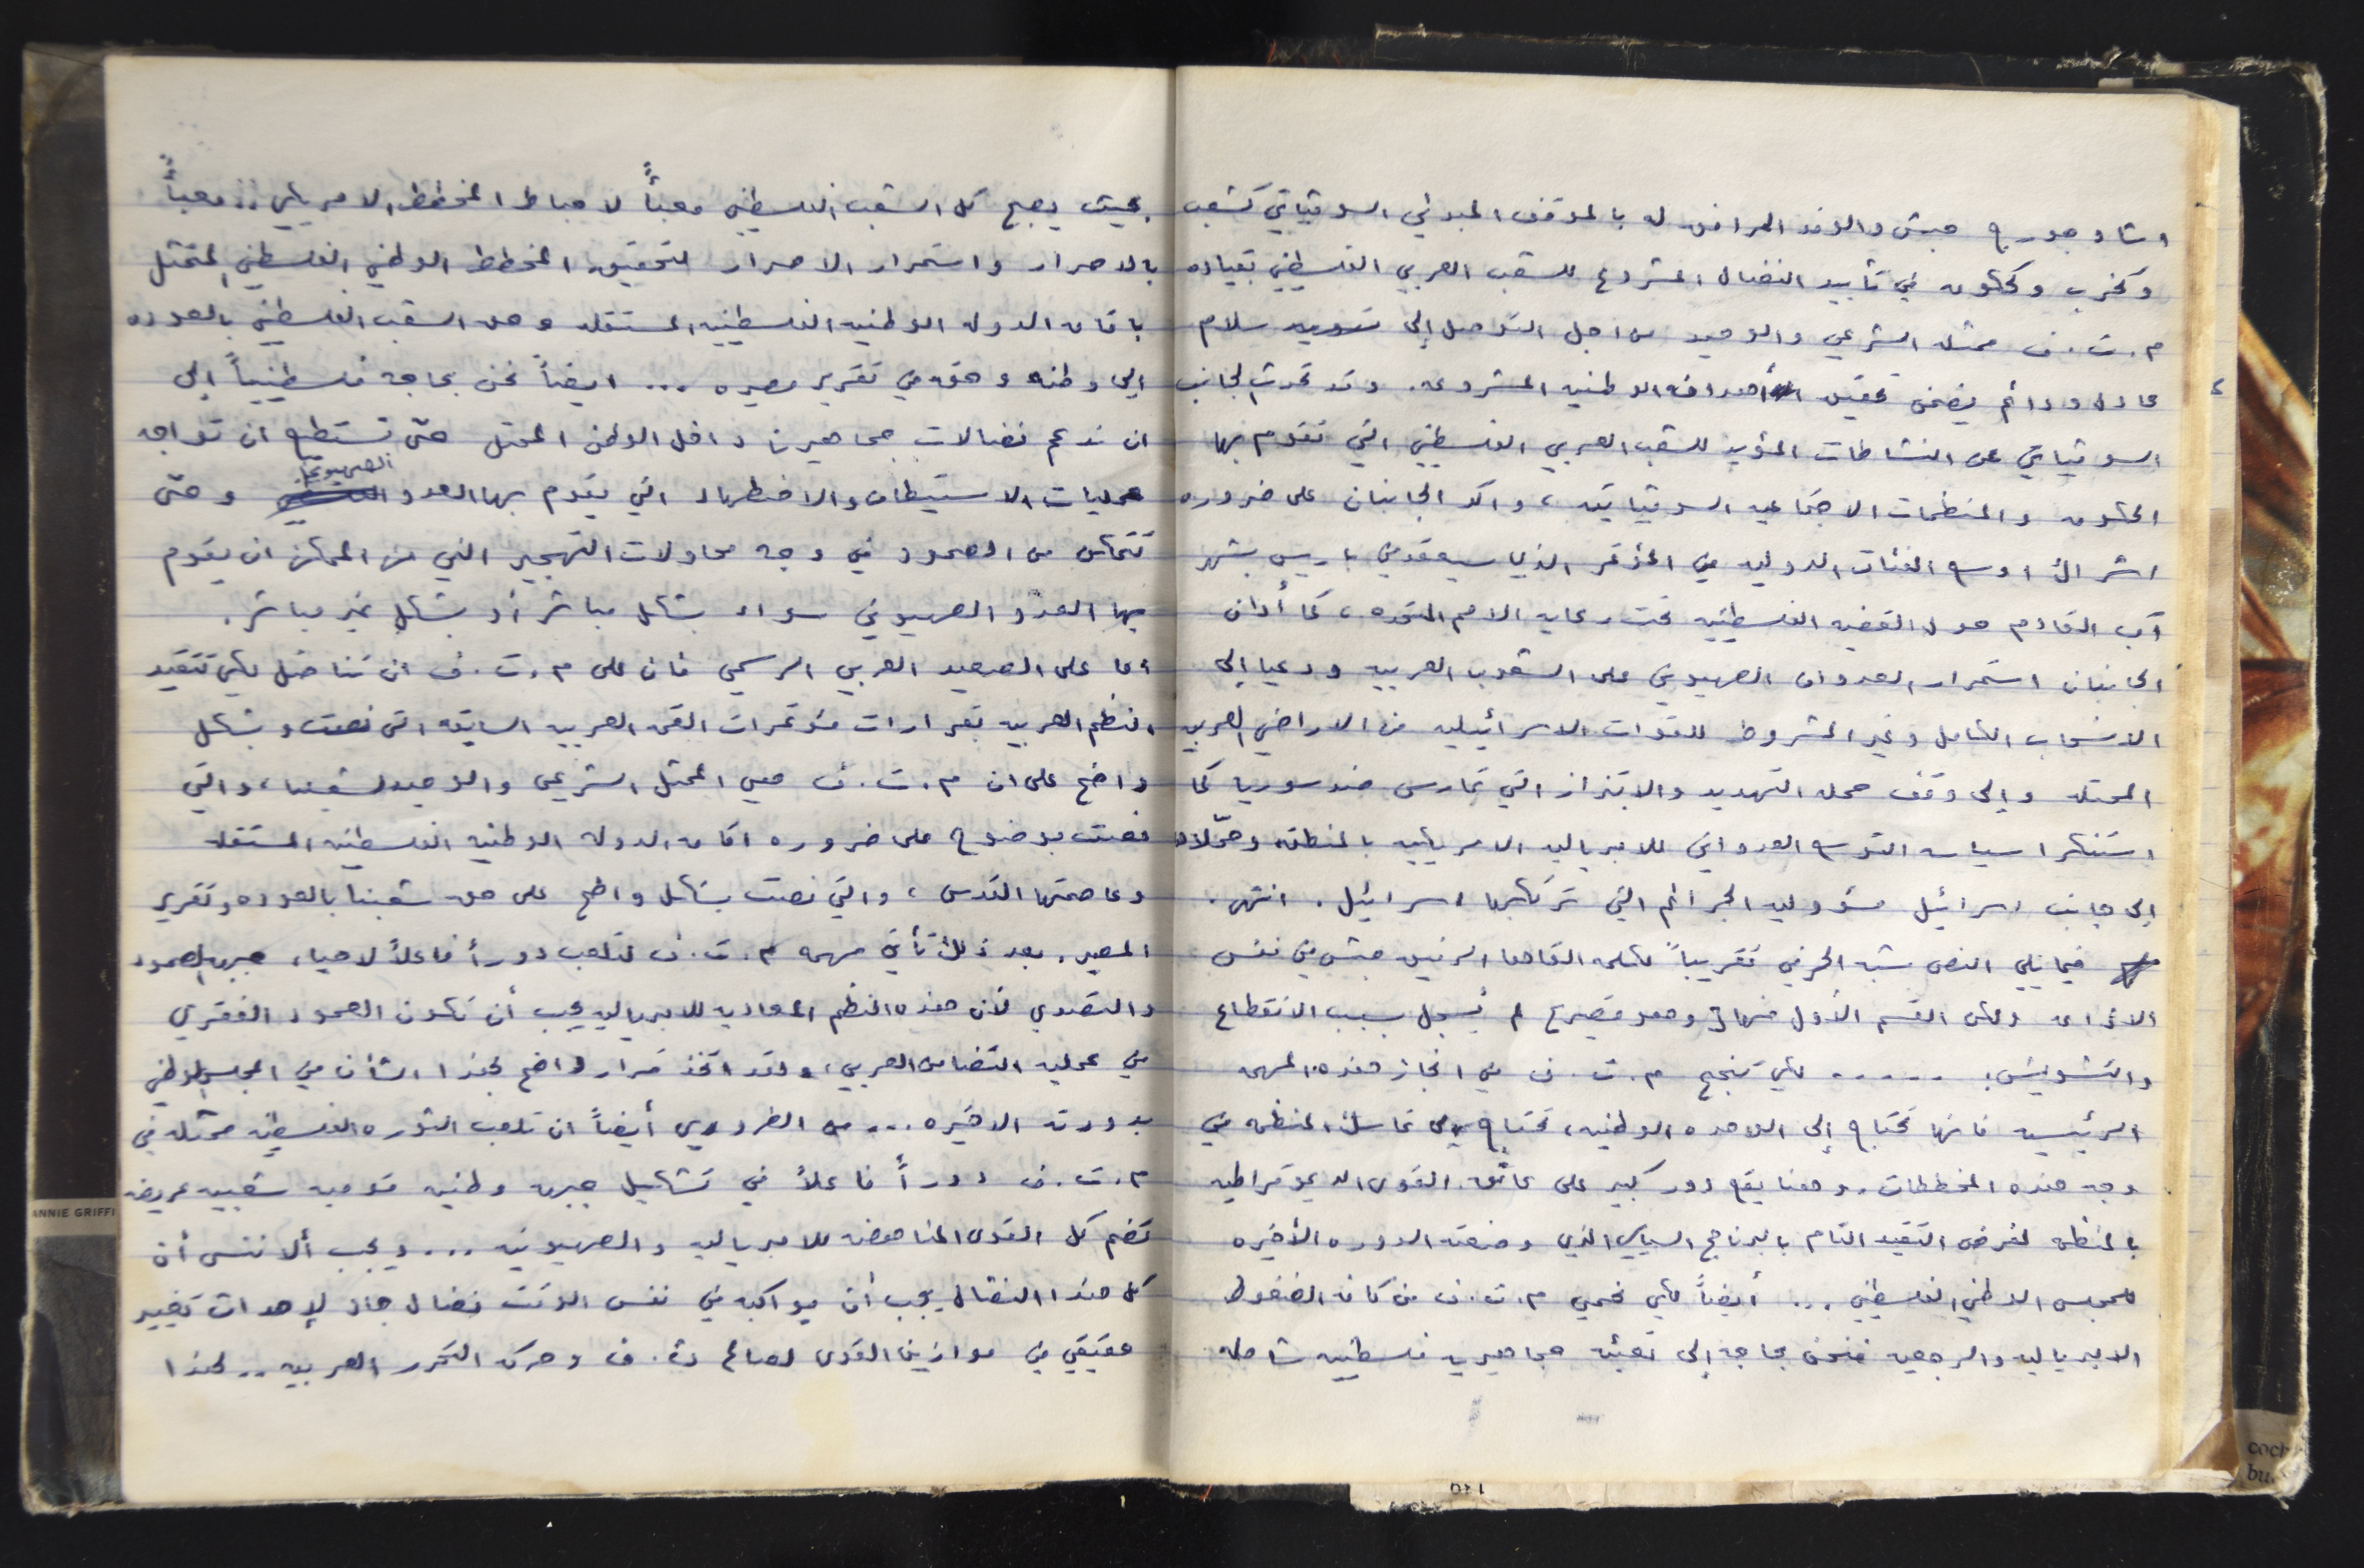 اشاد جورج حبش والوفد المرافق له بالموقف المبدئي السوفياتي كشعب
وكحزب وكحكومه في تأييد النضال المشروع للشعب العربي الفلسطيني بقياده
م.ت.ف ممثله الشرعي والوحيد من اجل التوصل إلى تسويه سلام
عادله ودائم يضمن تحقيق أهدافه الوطنيه المشروعه. وقد تحدث الجانب
السوفياتي عن النشاطات المؤيده للشعب العربي الفلسطيني التي تقوم بها
الحكومه والمنظمات الاجتماعيه السوفياتيه، واكد الجانبان على ضروره
اشراك اوسع الفئات الدوليه في المؤتمر الذي سيعقد في باريس بشهر
آب القادم حول القضيه الفلسطينيه تحت رعايه الامم المتحده، كما أدان
الجانبان استمرار العدوان الصهيوني على الشعوب العربيه ودعيا إلى
الانسحاب الكامل وغير المشروط للقوات الاسرائيليه من الاراضي العربيه
المحتله وإلى وقف حمله التهديد والابتزاز التي تمارس ضد سوريا كما
استنكرا سياسه التوسع العدواني للامبرياليه الامريكيه بالمنطقه وحمّلاها
إلى جانب اسرائيل مسؤوليه الجرائم التي ترتكبها اسرائيل. انتهى.
فيما يلي النص شبه الحرفي تقريباً لكلمه القاها الرفيق حبش في نفس
الاذاعه ولكن القسم الأول منها وهو قصير لم يُسجل بسبب الانقطاع
والتشويش: ..... لكي تنجح م.ت.ف في انجاز هذه المهمه
الرئيسيه فانها تحتاج إلى الوحده الوطنيه، تحتاج إلى تماسك المنظمه في
وجه هذه المخططات. وهنا يقع دور كبير على عاتق القوى الديموقراطيه
بالمنظمه لفرض التقيد التام بالبرنامج السياسي الذي وضعته الدوره الأخيره
للمجلس الوطني الفلسطيني ... أيضاً لكي نحمي م.ت.ف من كافه الضغوط
الامبرياليه والرجعيه فنحن بحاجه إلى تعبئه جماهيريه فلسطينيه شامله
بحيث يصبح كل الشعب الفلسطيني معبأً لاحباط المخطط الامريكي .. معبأً
بالاصرار واستمرار الاصرار لتحقيق المخطط الوطني الفلسطيني المتمثل
باقامه الدوله الوطنيه الفلسطينيه المستقله وحق الشعب الفلسطيني بالعوده
إلى وطنه وحقه في تقرير مصيره ... ايضاً نحن بحاجه فلسطينياً إلى
ان ندعم نضالات جماهيرنا داخل الوطن المحتل حتى تستطيع ان تواجه
عمليات الاستيطان والاضطهاد التي يقوم بها العدو الصهيوني وحتى
تتمكن من الصمود في وجه محاولات التهجير التي من الممكن ان يقوم
بها العدو الصهيوني سواء بشكل مباشر أو بشكل غير مباشر.
أما على الصعيد العربي الرسمي فان على م.ت.ف ان تناضل لكي تتقيد
النظم العربيه بقرارات مؤتمرات القمه العربيه السابقه التي نصت وبشكل
واضح على ان م.ت.ف هي الممثل الشرعي والوحيد لشعبنا، والتي
نصت بوضوح على ضروره اقامه الدوله الوطنيه الفلسطينيه المستقله
وعاصمتها القدس، والتي نصت بشكل واضح على حق شعبنا بالعوده وتقرير
المصير. بعد ذلك تأتي مهمه م.ت.ف لتلعب دوراً فاعلاً لاحياء جبهه الصمود
والتصدي لأن هذه النظم المعاديه للامبرياليه يجب أن تكون العمود الفقري
في عمليه التضامن العربي، ولقد اتخذ قرار واضح بهذا الشأن في المجلس الوطني
بدورته الاخيره ... من الضروري أيضاً ان تلعب الثوره الفلسطينيه ممثله في
م.ت.ف دوراً فاعلاً في تشكيل جبهه وطنيه قوميه شعبيه عريضه
تضم كل القوى المناهضه للامبرياليه والصهيونيه ... ويجب ألا ننسى أن
كل هذا النضال يجب أن يواكبه في نفس الوقت نضال جاد لإحداث تغيير
حقيقي في موازين القوى لصالح ث.ف وحركه التحرر العربيه .. لهذا
ANNIE GRIFFI